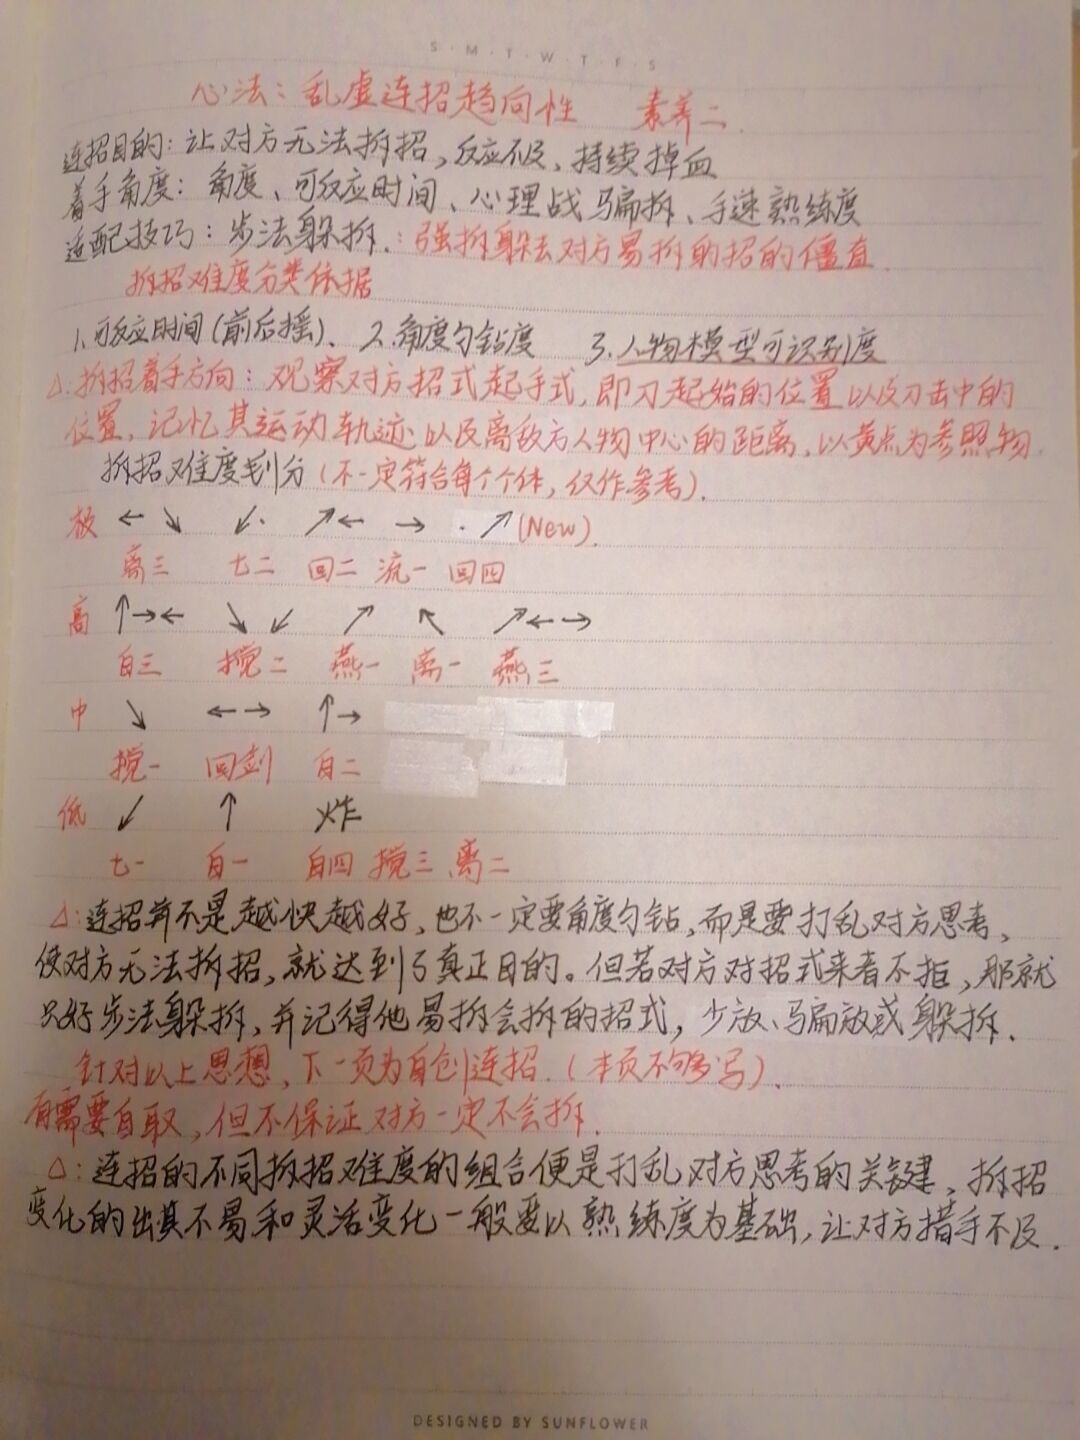 S·M·T·W·T·F·S
心法：乱虚连招趋向性 素养二.
连招目的：让对方无法拆招、反应不及、持续掉血
着手角度：角度、可反应时间、心理战骗拆、手速熟练度
适配技巧：步法躲拆.：强拆躲去对方易拆的招的僵直.
拆招难度分类依据
1.可反应时间(前后摇)、 2.角度刁钻度 3.人物模型可识别度
△:拆招着手方向：观察对方招式起手式，即刀起始的位置以及刀击中的
位置，记忆其运动轨迹以及离敌方人物中心的距离，以黄点为参照物.
拆招难度划分(不一定符合每个个体，仅作参考).
极 ←↘ ↙· ↗← → ·↗(New).
离三 七二 回二 流一 回四
高 ↑→← ↘↙ ↗ ↖ ↗←→
白三 搅二 燕一 离一 燕三
中 ↘ ←→ ↑→
搅一 回剑 白二
低 ↙ ↑ 炸
七一 白一 白四 搅三 离二
△:连招并不是越快越好，也不一定要角度刁钻，而是要打乱对方思考，
使对方无法拆招，就达到了真正目的。但若对方对招式来者不拒，那就
只好步法躲拆，并记得他易拆会拆的招式，少放、骗放或躲拆.
针对以上思想，下一页为自创连招.(本页不够写).
有需要自取，但不保证对方一定不会拆.
△:连招的不同拆招难度的组合便是打乱对方思考的关键、拆招
变化的出其不易和灵活变化一般要以熟练度为基础，让对方措手不及.
DESIGNED BY SUNFLOWER